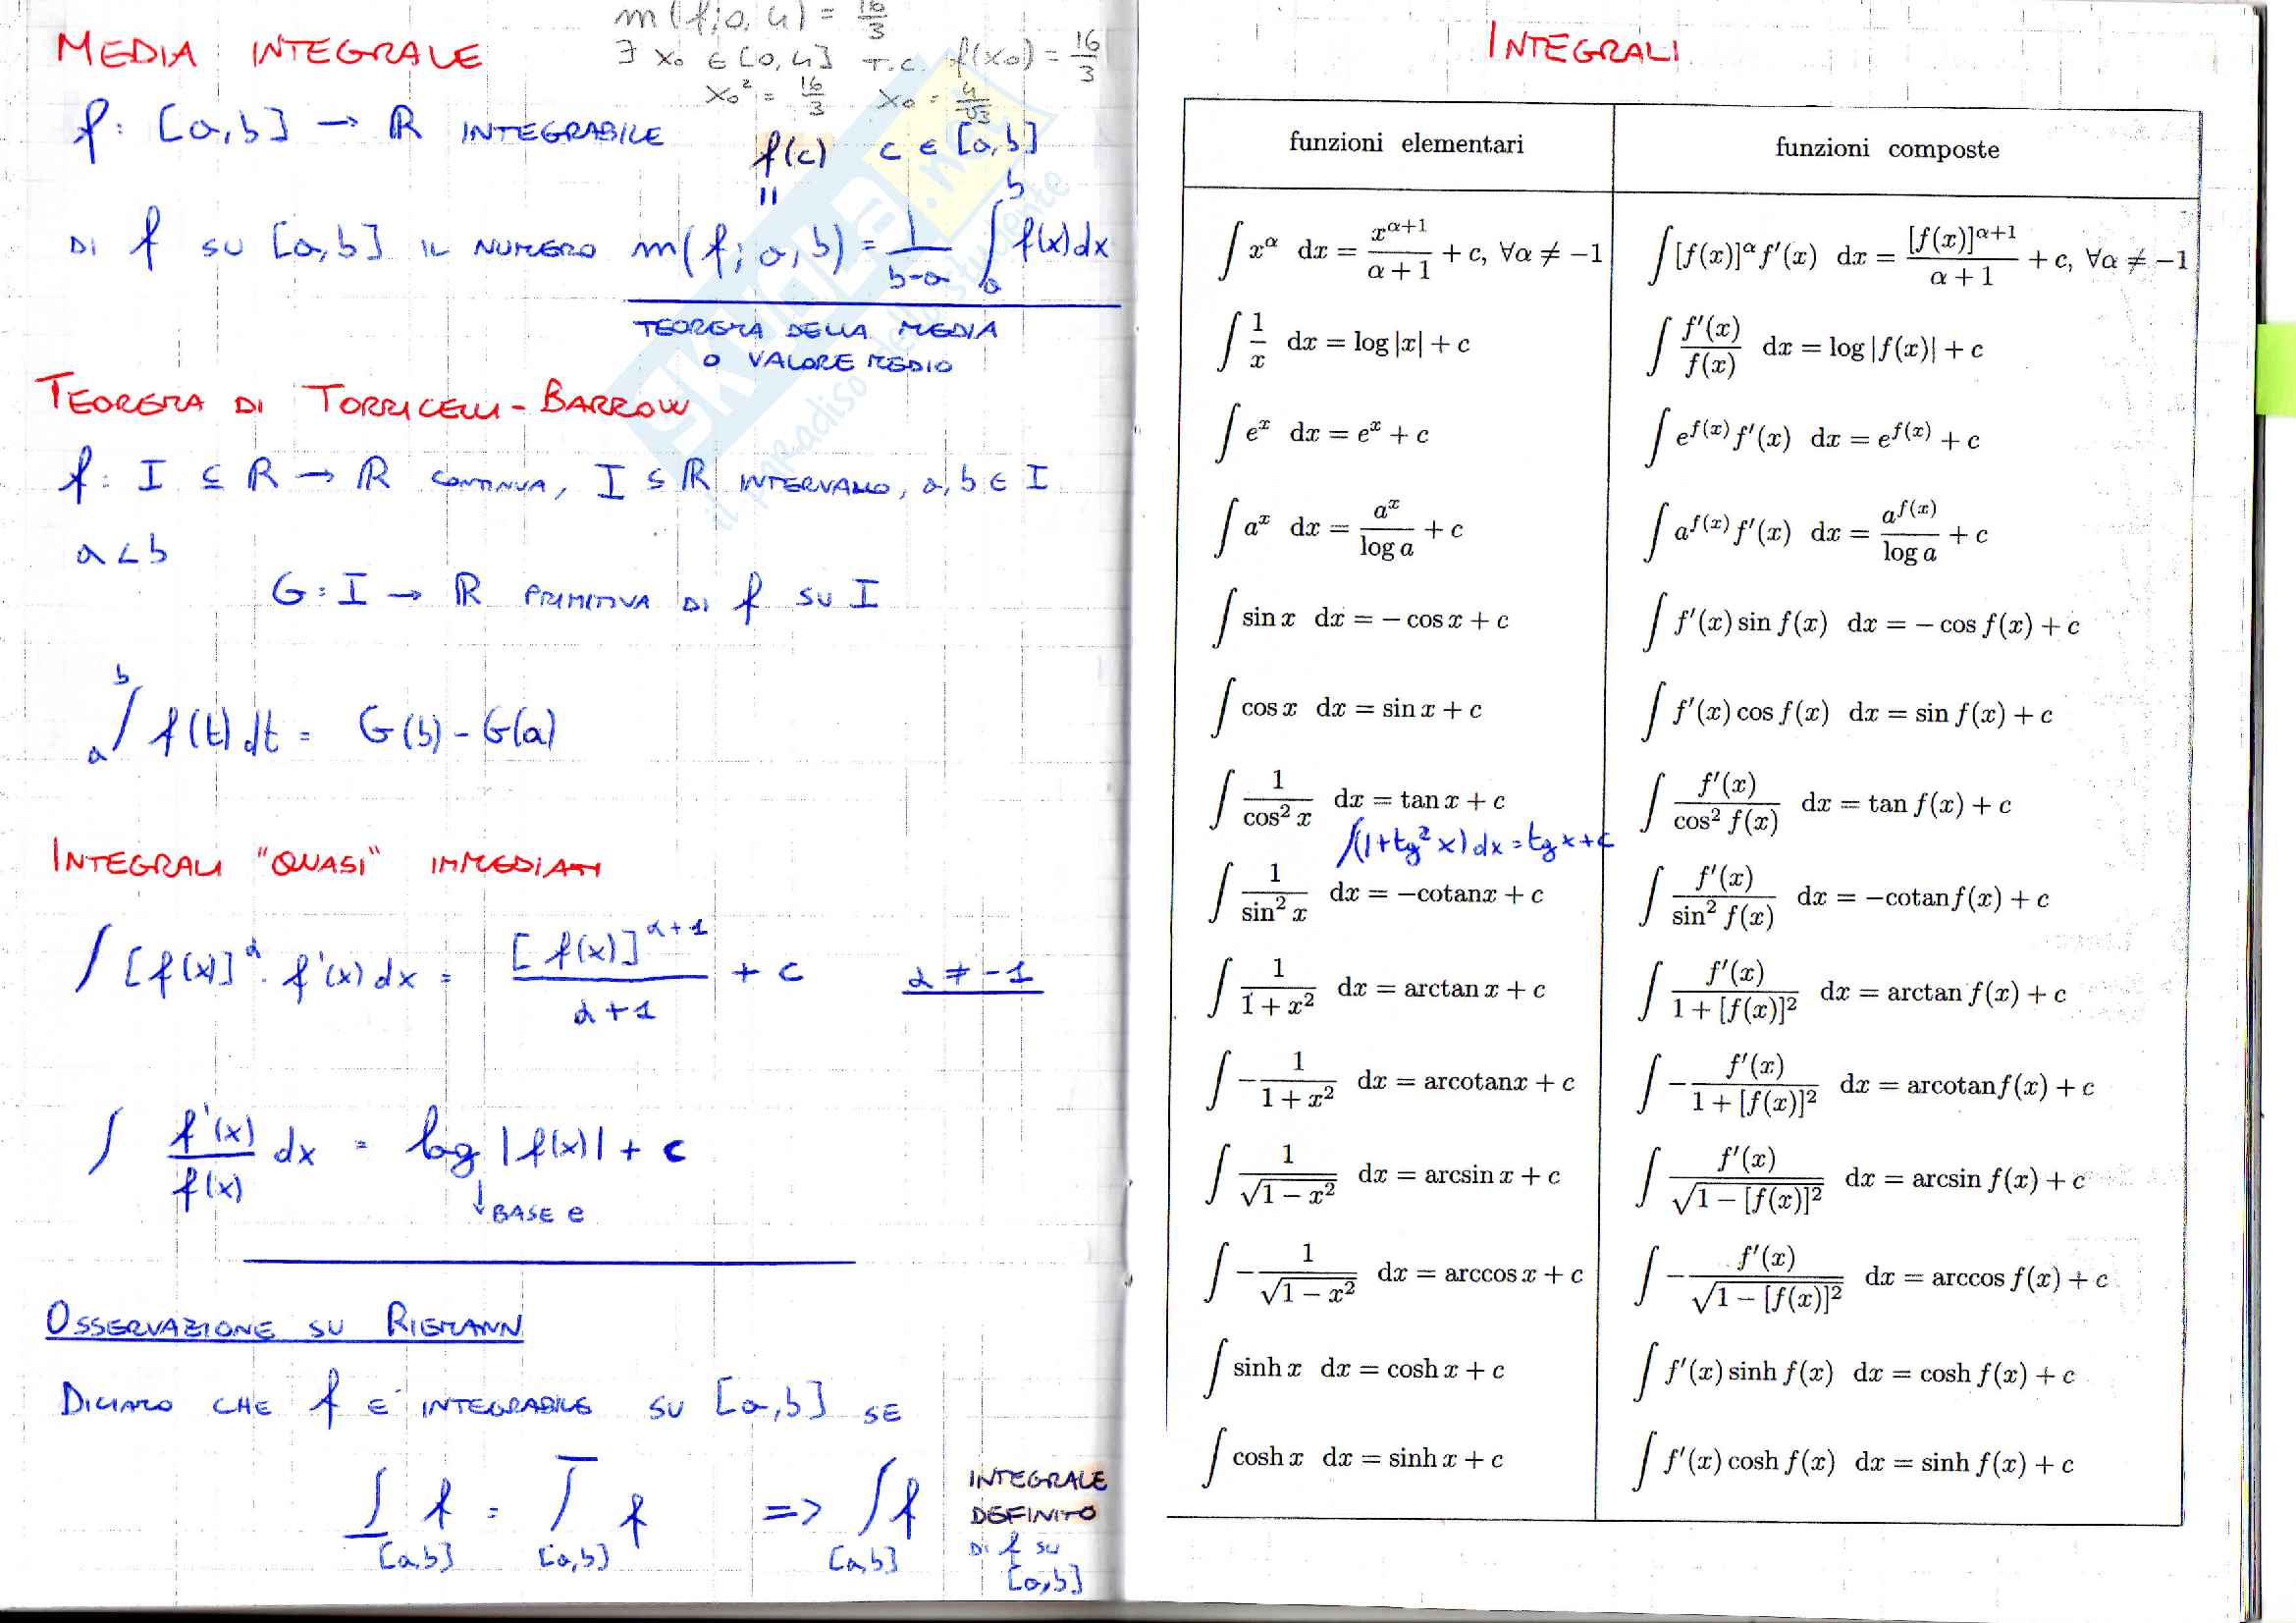 m(f; 0, 4) = 16/3
∃ x₀ ∈ [0, 4] T.C. f(x₀) = 16/3
x₀² = 16/3 x₀ = 4/√3
MEDIA INTEGRALE
f: [a,b] → ℝ INTEGRABILE
f(c) c ∈ [a,b]
||
DI f SU [a,b] IL NUMERO m(f; a, b) = 1/(b-a) ∫_a^b f(x)dx
TEOREMA DELLA MEDIA
O VALORE MEDIO
TEOREMA DI TORRICELLI-BARROW
f: I ⊆ ℝ → ℝ CONTINUA, I ⊆ ℝ INTERVALLO, a, b ∈ I
a < b
G: I → ℝ PRIMITIVA DI f SU I
∫_a^b f(t)dt = G(b) - G(a)
INTEGRALI "QUASI" IMMEDIATI
∫ [f(x)]^α · f'(x)dx = [f(x)]^(α+1)/(α+1) + c α ≠ -1
∫ f'(x)/f(x) dx = log |f(x)| + c
↓ BASE e
OSSERVAZIONE SU RIEMANN
DICIAMO CHE f E' INTEGRABILE SU [a,b] SE
∫ f = ∫ f => ∫ f
[a,b] [a,b] [a,b]
INTEGRALE
DEFINITO
DI f SU
[a,b]
SKUOLA.net
il paradiso dello studente
INTEGRALI
funzioni elementari funzioni composte
∫ x^α dx = x^(α+1)/(α+1) + c, ∀α ≠ −1 ∫ [f(x)]^α f′(x) dx = [f(x)]^(α+1)/(α+1) + c, ∀α ≠ −1
∫ 1/x dx = log |x| + c ∫ f′(x)/f(x) dx = log |f(x)| + c
∫ e^x dx = e^x + c ∫ e^f(x) f′(x) dx = e^f(x) + c
∫ a^x dx = a^x/log a + c ∫ a^f(x) f′(x) dx = a^f(x)/log a + c
∫ sin x dx = − cos x + c ∫ f′(x) sin f(x) dx = − cos f(x) + c
∫ cos x dx = sin x + c ∫ f′(x) cos f(x) dx = sin f(x) + c
∫ 1/cos² x dx = tan x + c ∫ f′(x)/cos² f(x) dx = tan f(x) + c
∫(1+tg²x)dx = tgx+c
∫ 1/sin² x dx = −cotanx + c ∫ f′(x)/sin² f(x) dx = −cotanf(x) + c
∫ 1/(1 + x²) dx = arctan x + c ∫ f′(x)/(1 + [f(x)]²) dx = arctan f(x) + c
∫ −1/(1 + x²) dx = arcotanx + c ∫ −f′(x)/(1 + [f(x)]²) dx = arcotanf(x) + c
∫ 1/√(1 − x²) dx = arcsin x + c ∫ f′(x)/√(1 − [f(x)]²) dx = arcsin f(x) + c
∫ −1/√(1 − x²) dx = arccos x + c ∫ −f′(x)/√(1 − [f(x)]²) dx = arccos f(x) + c
∫ sinh x dx = cosh x + c ∫ f′(x) sinh f(x) dx = cosh f(x) + c
∫ cosh x dx = sinh x + c ∫ f′(x) cosh f(x) dx = sinh f(x) + c